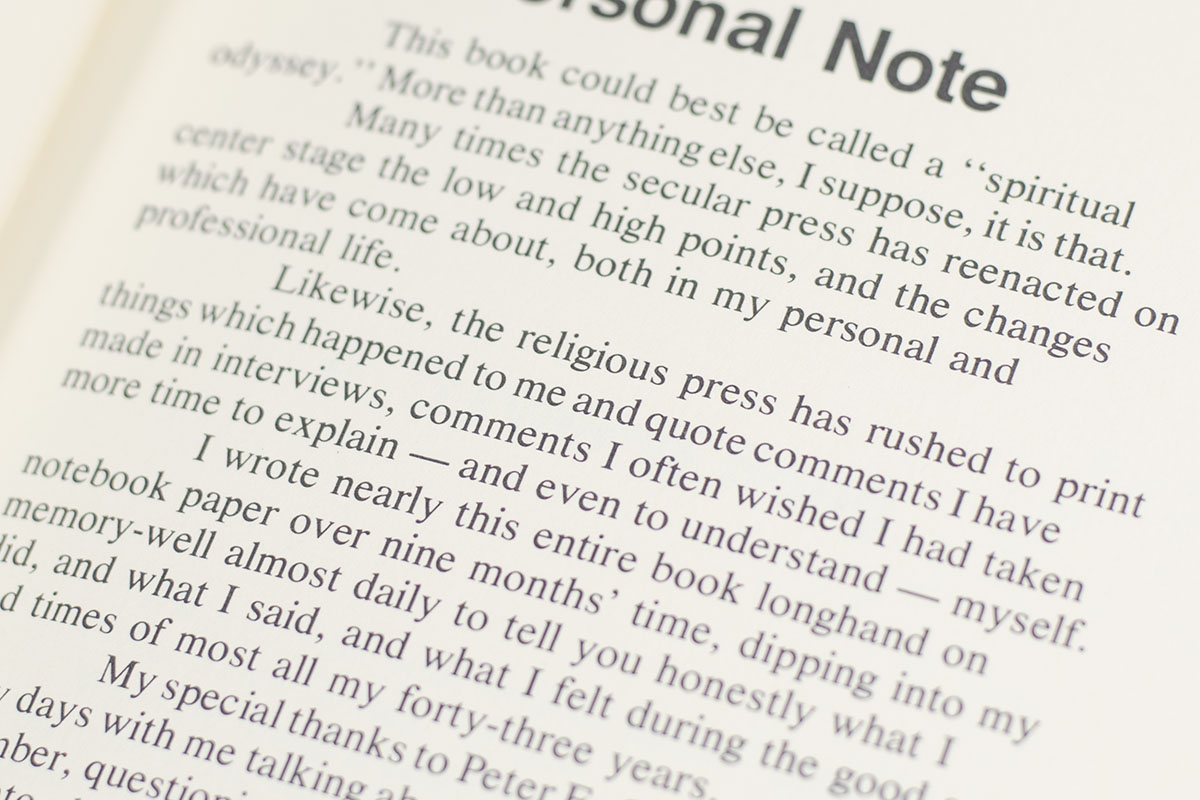 ersonal Note
This book could best be called a “spiritual
odyssey.” More than anything else, I suppose, it is that.
Many times the secular press has reenacted on
center stage the low and high points, and the changes
which have come about, both in my personal and
professional life.
Likewise, the religious press has rushed to print
things which happened to me and quote comments I have
made in interviews, comments I often wished I had taken
more time to explain — and even to understand — myself.
I wrote nearly this entire book longhand on
notebook paper over nine months’ time, dipping into my
memory-well almost daily to tell you honestly what I
did, and what I said, and what I felt during the good
d times of most all my forty-three years.
My special thanks to Peter
days with me talking
mber, questioni